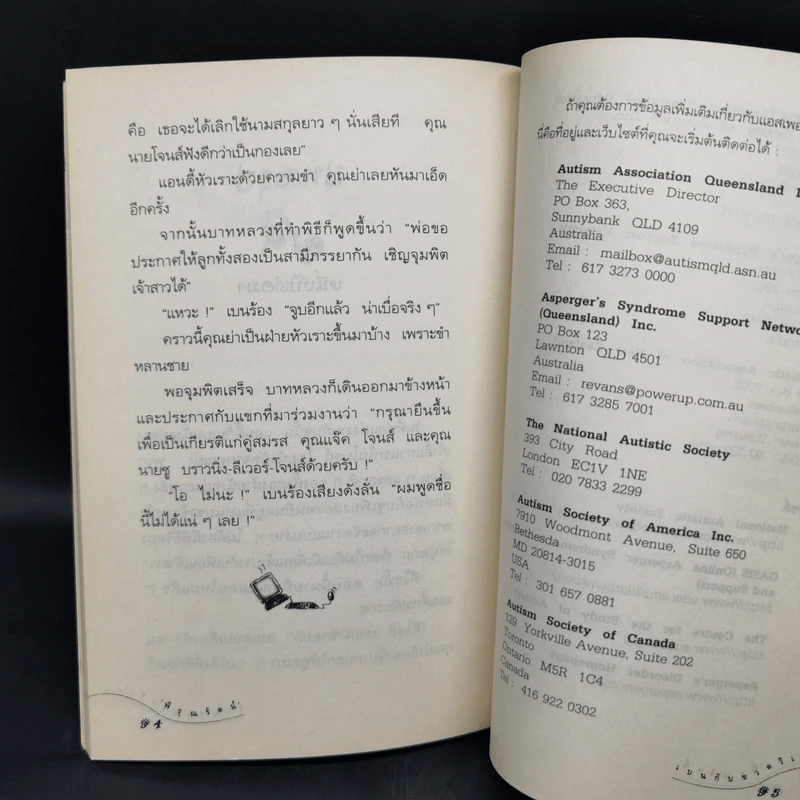 คือ เธอจะได้เลิกใช้นามสกุลยาว ๆ นั่นเสียที คุณ
นายโจนส์ฟังดีกว่าเป็นกองเลย”
แอนดี้หัวเราะด้วยความขำ คุณย่าเลยหันมาเอ็ด
อีกครั้ง
จากนั้นบาทหลวงที่ทำพิธีก็พูดขึ้นว่า “พ่อขอ
ประกาศให้ลูกทั้งสองเป็นสามีภรรยากัน เชิญจุมพิต
เจ้าสาวได้”
“แหวะ !” เบนร้อง “จูบอีกแล้ว น่าเบื่อจริง ๆ”
คราวนี้คุณย่าเป็นฝ่ายหัวเราะขึ้นมาบ้าง เพราะขำ
หลานชาย
พอจุมพิตเสร็จ บาทหลวงก็เดินออกมาข้างหน้า
และประกาศกับแขกที่มาร่วมงานว่า “กรุณายืนขึ้น
เพื่อเป็นเกียรติแก่คู่สมรส คุณแจ๊ค โจนส์ และคุณ
นายซู บราวนิ่ง-ลีเวอร์-โจนส์ด้วยครับ !”
“โอ ไม่นะ !” เบนร้องเสียงดังลั่น “ผมพูดชื่อ
นี้ไม่ได้แน่ ๆ เลย !”
94
ถ้าคุณต้องการข้อมูลเพิ่มเติมเกี่ยวกับแอสเพอ
นี่คือที่อยู่และเว็บไซต์ที่คุณจะเริ่มต้นติดต่อได้ :
Autism Association Queensland I
The Executive Director
PO Box 363,
Sunnybank QLD 4109
Australia
Email : mailbox@autismqld.asn.au
Tel : 617 3273 0000
Asperger's Syndrome Support Netwo
(Queensland) Inc.
PO Box 123
Lawnton QLD 4501
Australia
Email : revans@powerup.com.au
Tel : 617 3285 7001
The National Autistic Society
393 City Road
London EC1V 1NE
Tel : 020 7833 2299
Autism Society of America Inc.
7910 Woodmont Avenue, Suite 650
Bethesda
MD 20814-3015
USA
Tel : 301 657 0881
Autism Society of Canada
129 Yorkville Avenue, Suite 202
Toronto
Ontario M5R 1C4
Canada
Tel : 416 922 0302
95